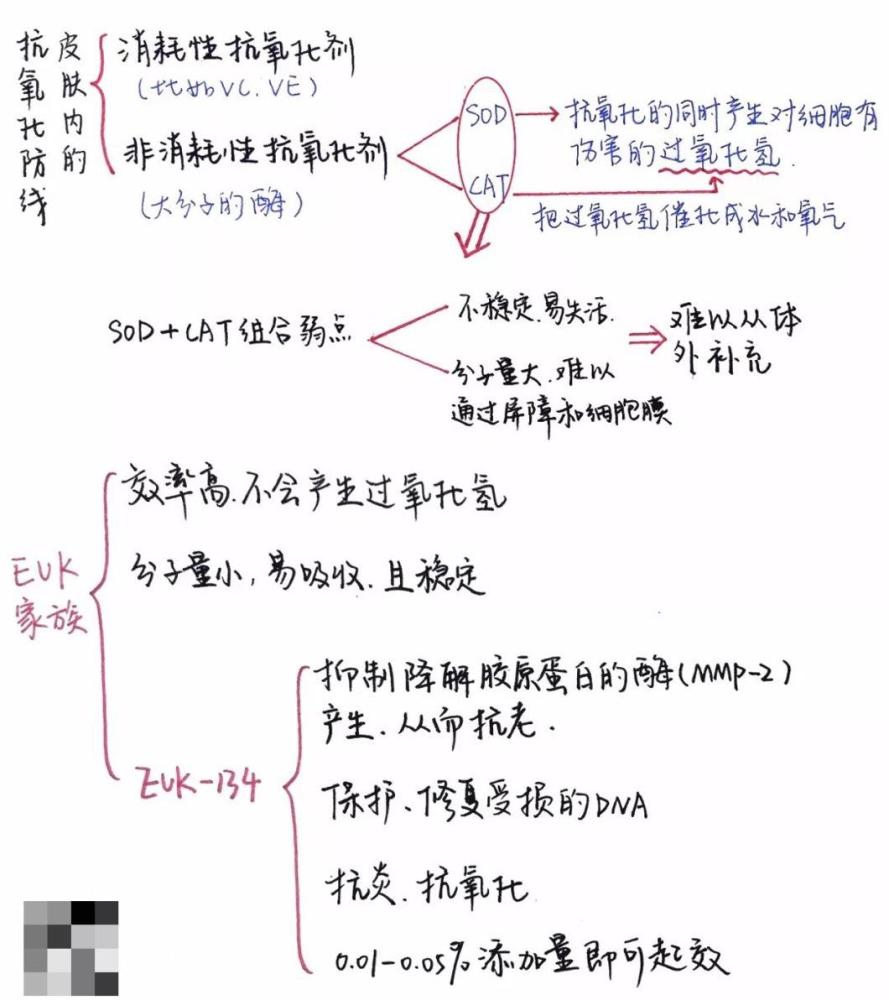 皮肤内的
抗氧化防线
消耗性抗氧化剂
(比如VC.VE)
非消耗性抗氧化剂
(大分子的酶)
SOD
抗氧化的同时产生对细胞有
伤害的过氧化氢.
CAT
把过氧化氢催化成水和氧气
SOD+CAT组合弱点
不稳定.易失活.
分子量大.难以
通过屏障和细胞膜
难以从体
外补充
EUK
家族
效率高.不会产生过氧化氢
分子量小,易吸收.且稳定
EUK-134
抑制降解胶原蛋白的酶(MMP-2)
产生.从而抗老.
保护、修复受损的DNA
抗炎.抗氧化
0.01-0.05%添加量即可起效